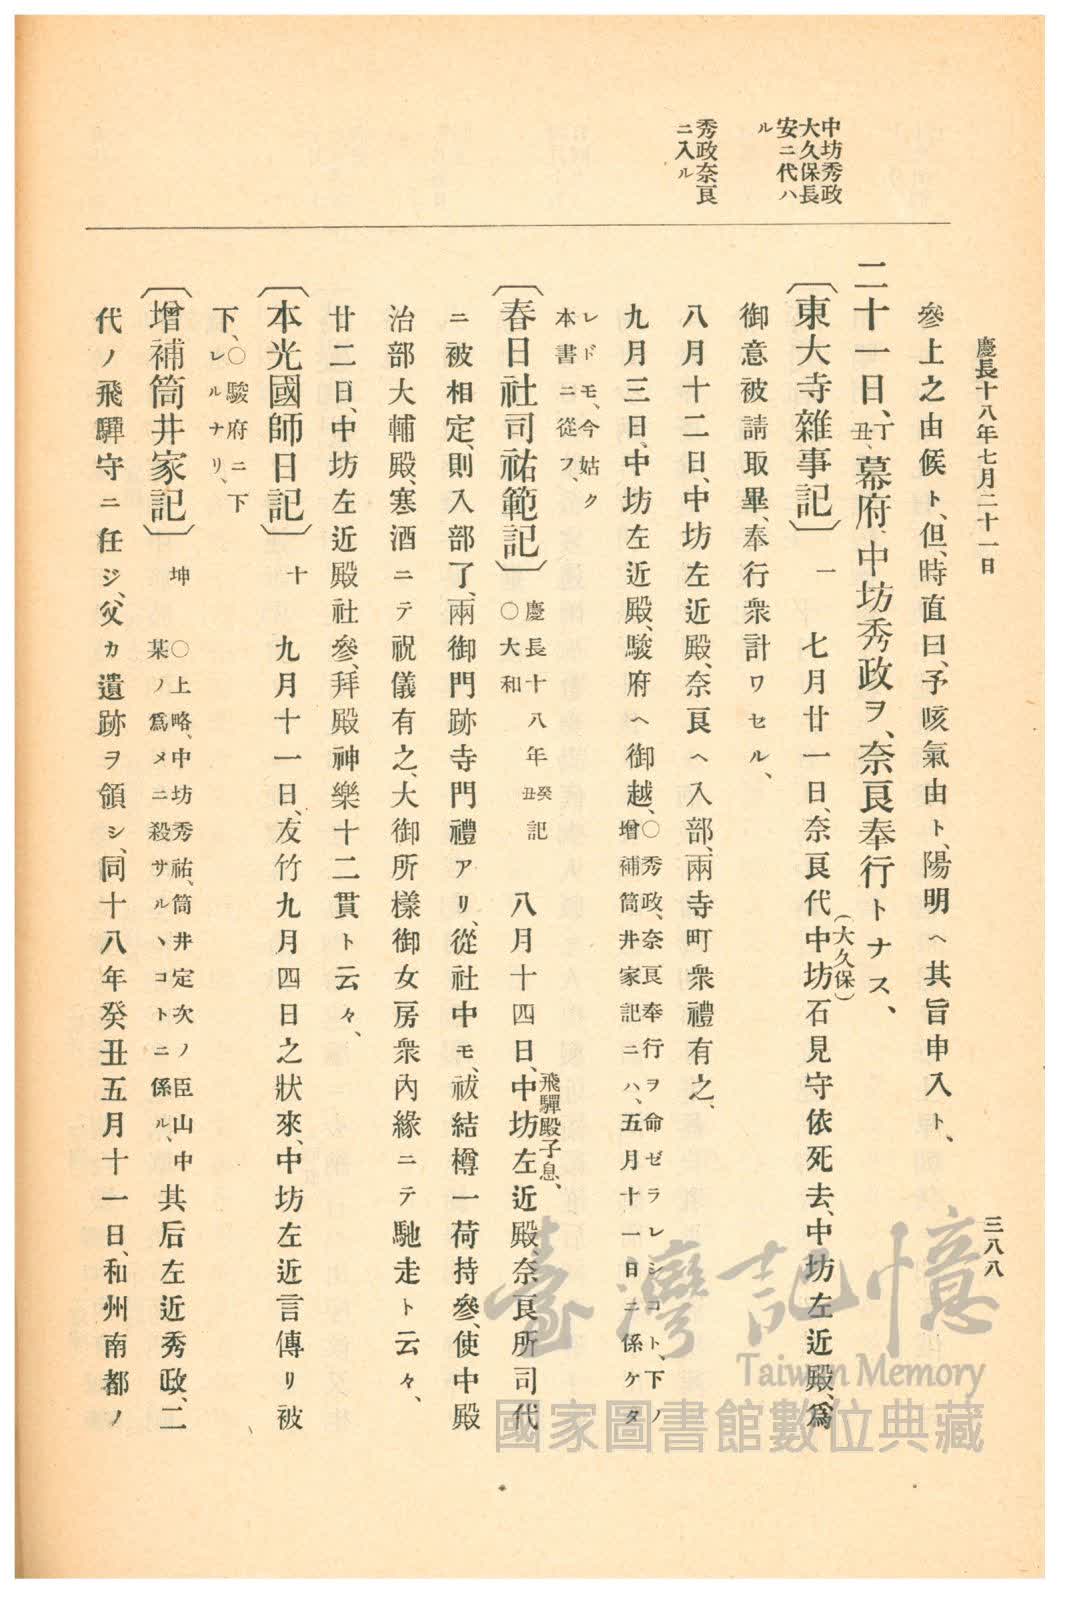 慶長十八年七月二十一日
三八八
中坊秀政
大久保長
安ニ代ハ
ル
秀政奈良
ニ入ル
參上之由候ト、但、時直曰、予咳氣由ト、陽明ヘ其旨申入ト、
二十一日、丁丑、幕府、中坊秀政ヲ、奈良奉行トナス、
〔東大寺雜事記〕 一 七月廿一日、奈良代中坊石見守依死去、中坊左近殿、爲
(大久保)
御意被請取畢、奉行衆計ワセル、
八月十二日、中坊左近殿、奈良ヘ入部、兩寺町衆禮有之、
九月三日、中坊左近殿、駿府ヘ御越、○秀政、奈良奉行ヲ命ゼラレシコト、下ノ
增補筒井家記ニハ、五月十一日ニ係ケタ
レドモ、今姑ク
本書ニ從フ、
〔春日社司祐範記〕 慶長十八年癸丑記
○大和
八月十四日、中坊左近殿、奈良所司代
飛驒殿子息、
ニ被相定、則入部了、兩御門跡寺門禮アリ、從社中モ、祓結樽一荷持參、使中殿
治部大輔殿、寒酒ニテ祝儀有之、大御所樣御女房衆內緣ニテ馳走ト云々、
廿二日、中坊左近殿社參、拜殿神樂十二貫ト云々、
〔本光國師日記〕 十 九月十一日、友竹九月四日之狀來、中坊左近言傳リ被
下、○駿府ニ下
レルナリ、
〔增補筒井家記〕 坤 ○上略、中坊秀祐、筒井定次ノ臣山中
某ノ爲メニ殺サルヽコトニ係ル、
其后左近秀政、二
代ノ飛驒守ニ任ジ、父カ遺跡ヲ領シ、同十八年癸丑五月十一日、和州南都ノ
臺灣記憶
Taiwan Memory
國家圖書館數位典藏